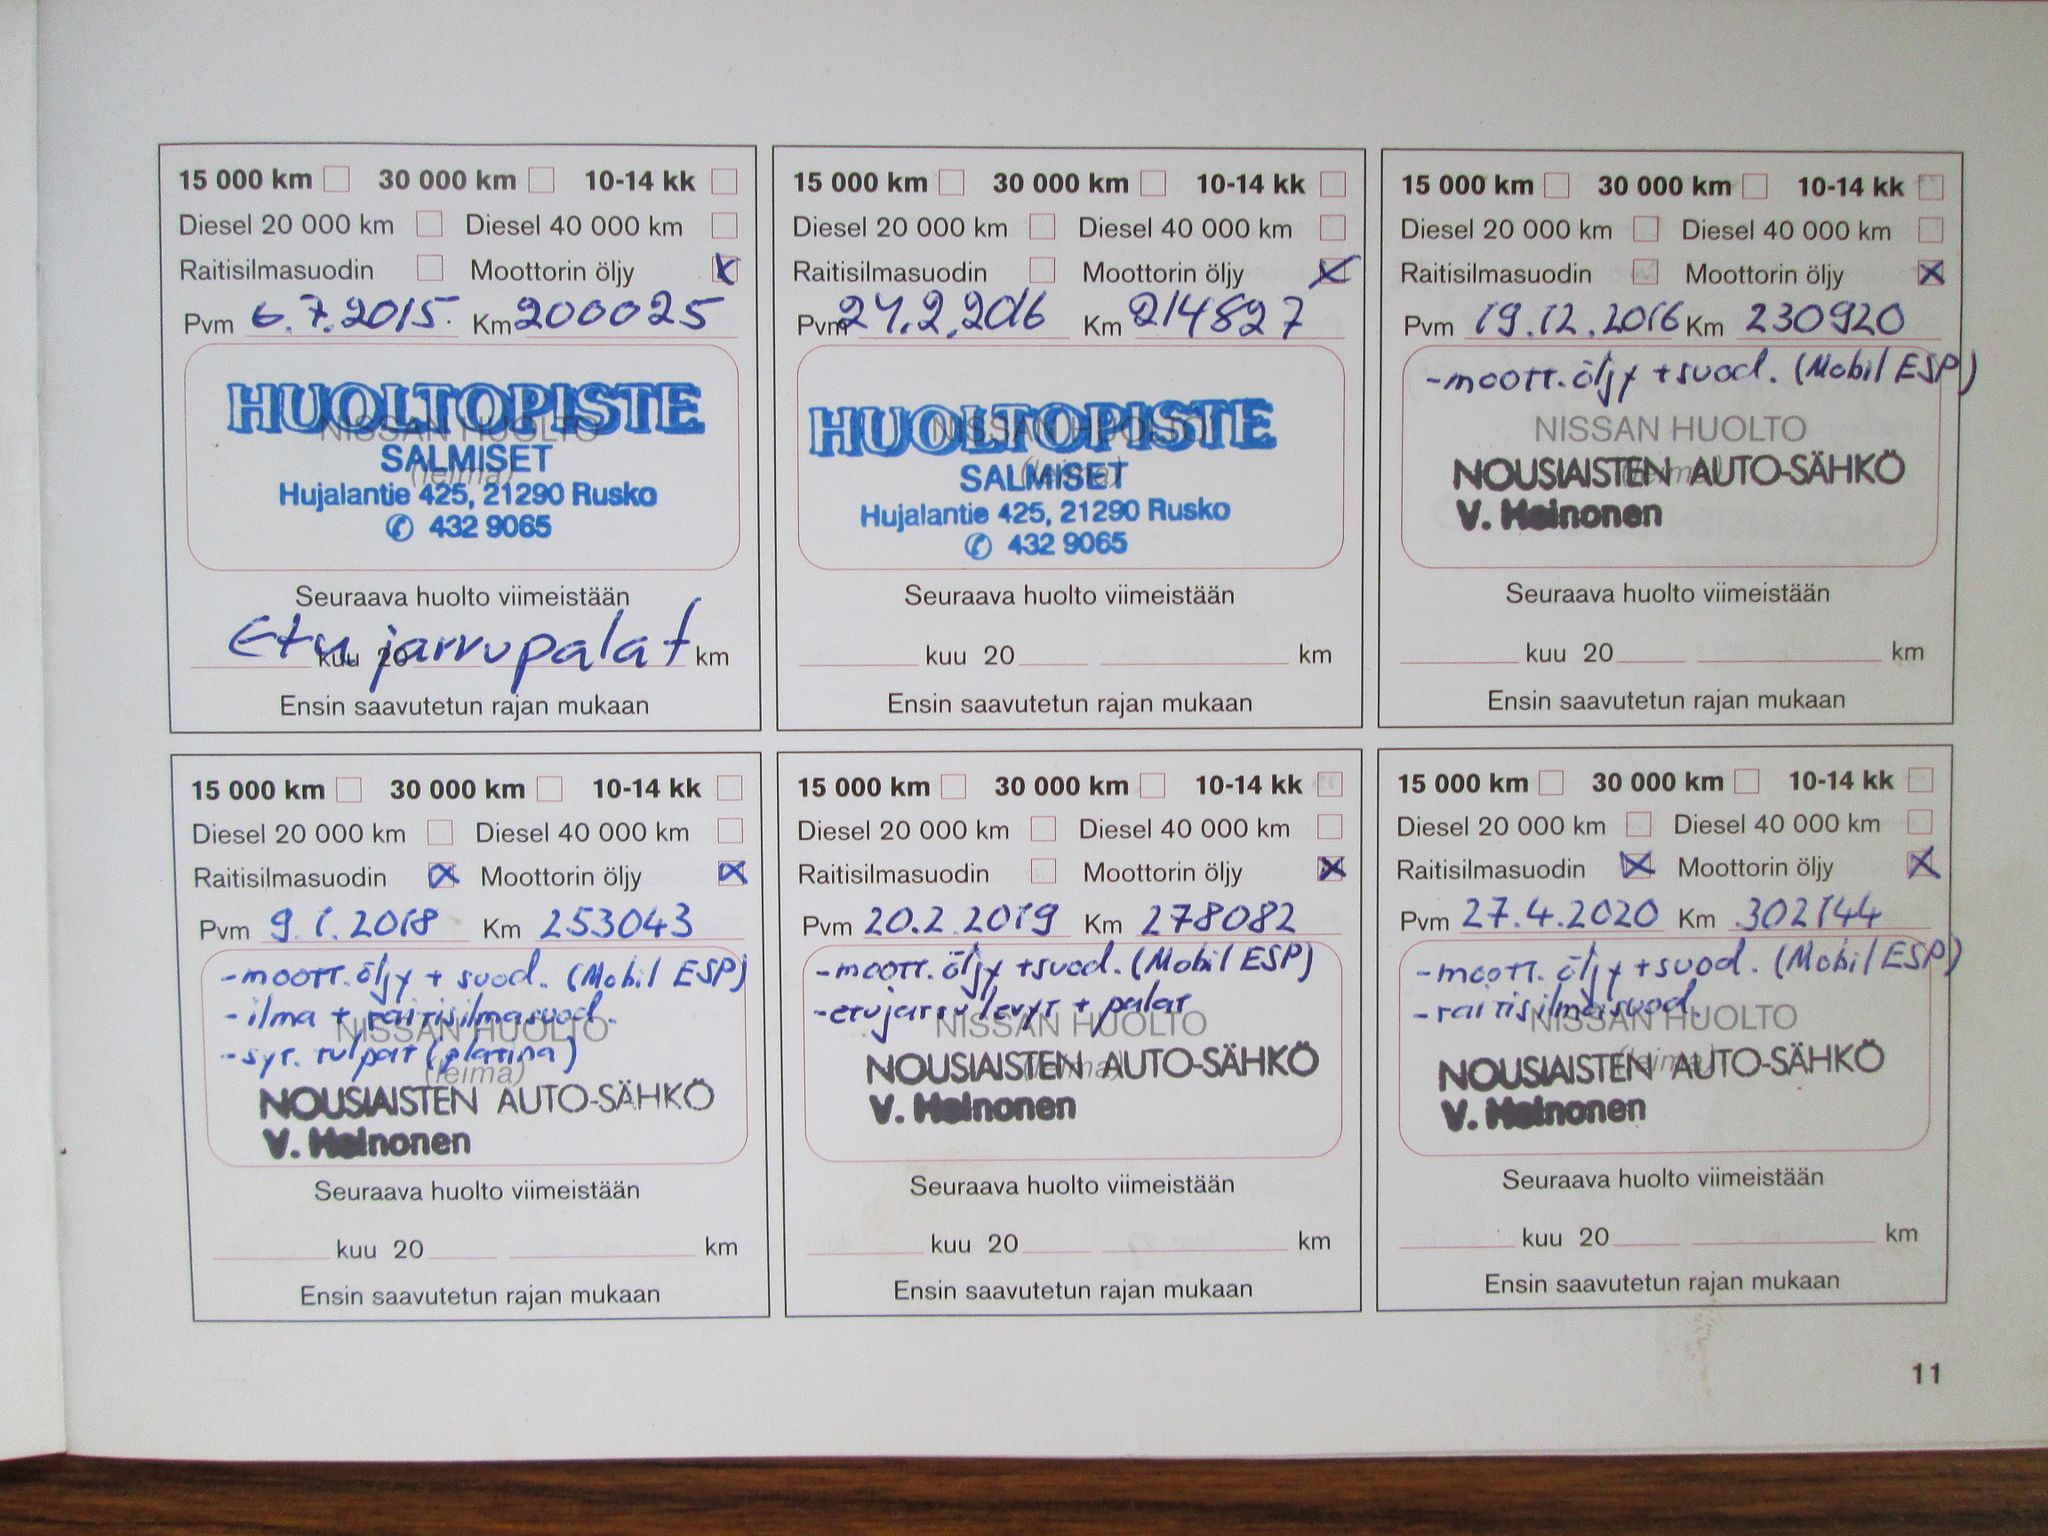 15 000 km 30 000 km 10-14 kk
Diesel 20 000 km Diesel 40 000 km
Raitisilmasuodin Moottorin öljy
Pvm 6.7.2015. Km 200025
HUOLTOPISTE
NISSAN HUOLTO
SALMISET
(leima)
Hujalantie 425, 21290 Rusko
✆ 432 9065
Seuraava huolto viimeistään
Etu jarrupalat
kuu 20 km
Ensin saavutetun rajan mukaan
15 000 km 30 000 km 10-14 kk
Diesel 20 000 km Diesel 40 000 km
Raitisilmasuodin Moottorin öljy
Pvm 24.2.2016 Km 214827
HUOLTOPISTE
NISSAN HUOLTO
SALMISET
(leima)
Hujalantie 425, 21290 Rusko
✆ 432 9065
Seuraava huolto viimeistään
kuu 20 km
Ensin saavutetun rajan mukaan
15 000 km 30 000 km 10-14 kk
Diesel 20 000 km Diesel 40 000 km
Raitisilmasuodin Moottorin öljy
Pvm 19.12.2016 Km 230920
-moott.öljy +suod. (Mobil ESP)
NISSAN HUOLTO
(leima)
NOUSIAISTEN AUTO-SÄHKÖ
V. Heinonen
Seuraava huolto viimeistään
kuu 20 km
Ensin saavutetun rajan mukaan
15 000 km 30 000 km 10-14 kk
Diesel 20 000 km Diesel 40 000 km
Raitisilmasuodin Moottorin öljy
Pvm 9.1.2018 Km 253043
-moott.öljy + suod. (Mobil ESP)
-ilma + raitisilmasuod.
NISSAN HUOLTO
-syt. tulpat (platina)
(leima)
NOUSIAISTEN AUTO-SÄHKÖ
V. Heinonen
Seuraava huolto viimeistään
kuu 20 km
Ensin saavutetun rajan mukaan
15 000 km 30 000 km 10-14 kk
Diesel 20 000 km Diesel 40 000 km
Raitisilmasuodin Moottorin öljy
Pvm 20.2.2019 Km 278082
-moott.öljy +suod. (Mobil ESP)
-etujarrulevyt + palat
NISSAN HUOLTO
(leima)
NOUSIAISTEN AUTO-SÄHKÖ
V. Heinonen
Seuraava huolto viimeistään
kuu 20 km
Ensin saavutetun rajan mukaan
15 000 km 30 000 km 10-14 kk
Diesel 20 000 km Diesel 40 000 km
Raitisilmasuodin Moottorin öljy
Pvm 27.4.2020 Km 302144
-moott.öljy +suod. (Mobil ESP)
-raitisilmasuod.
NISSAN HUOLTO
(leima)
NOUSIAISTEN AUTO-SÄHKÖ
V. Heinonen
Seuraava huolto viimeistään
kuu 20 km
Ensin saavutetun rajan mukaan
11